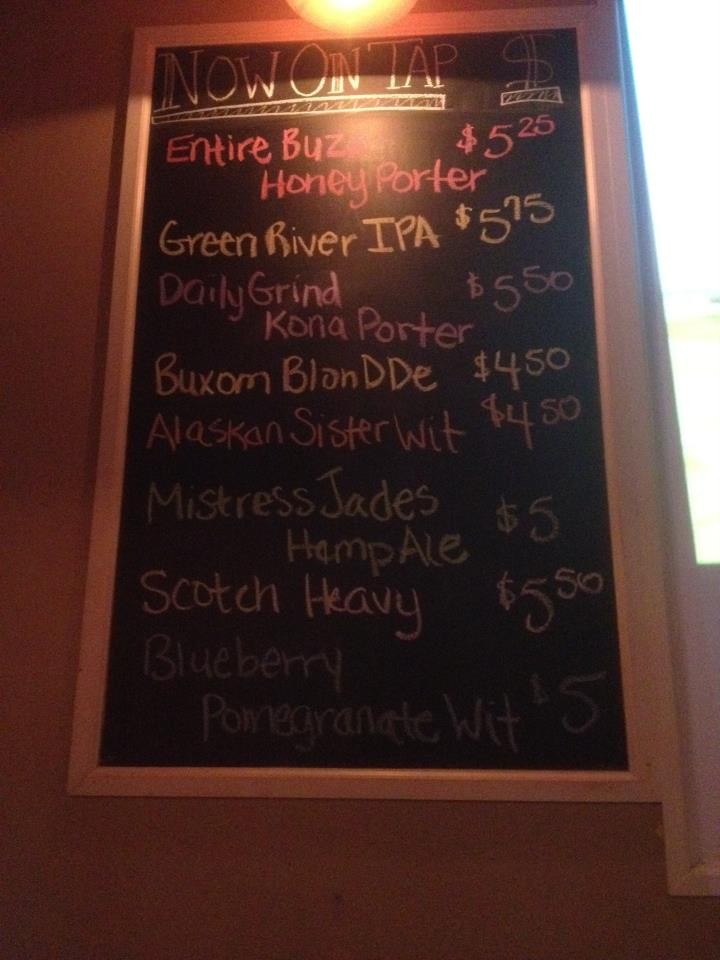 NOW ON TAP $
Entire $5.25
Honey Porter
Green River IPA $5.75
Daily Grind $5.50
Kona Porter
Buxom BlonDDe $4.50
Alaskan Sister Wit $4.50
Mistress Jades
Hemp Ale $5
Scotch Heavy $5.50
Blueberry
Pomegranate Wit $5